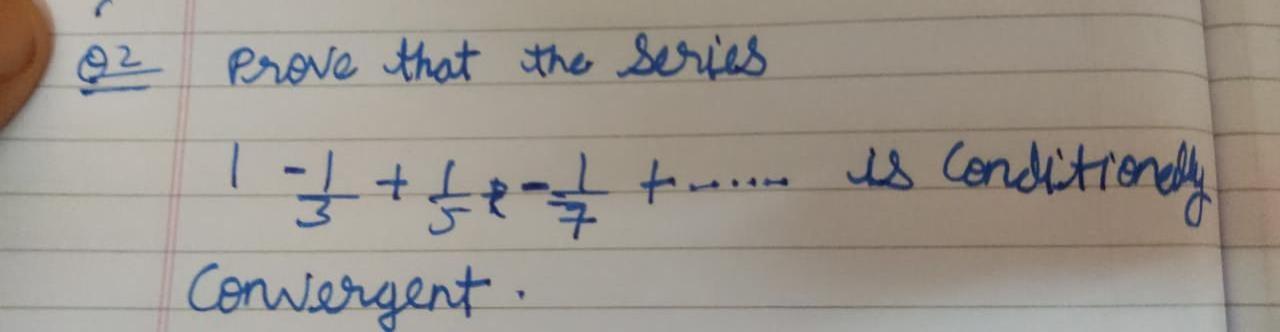 Q2 Prove that the Series
1 - 1/3 + 1/5 - 1/7 + ...... is Conditionally
Convergent.